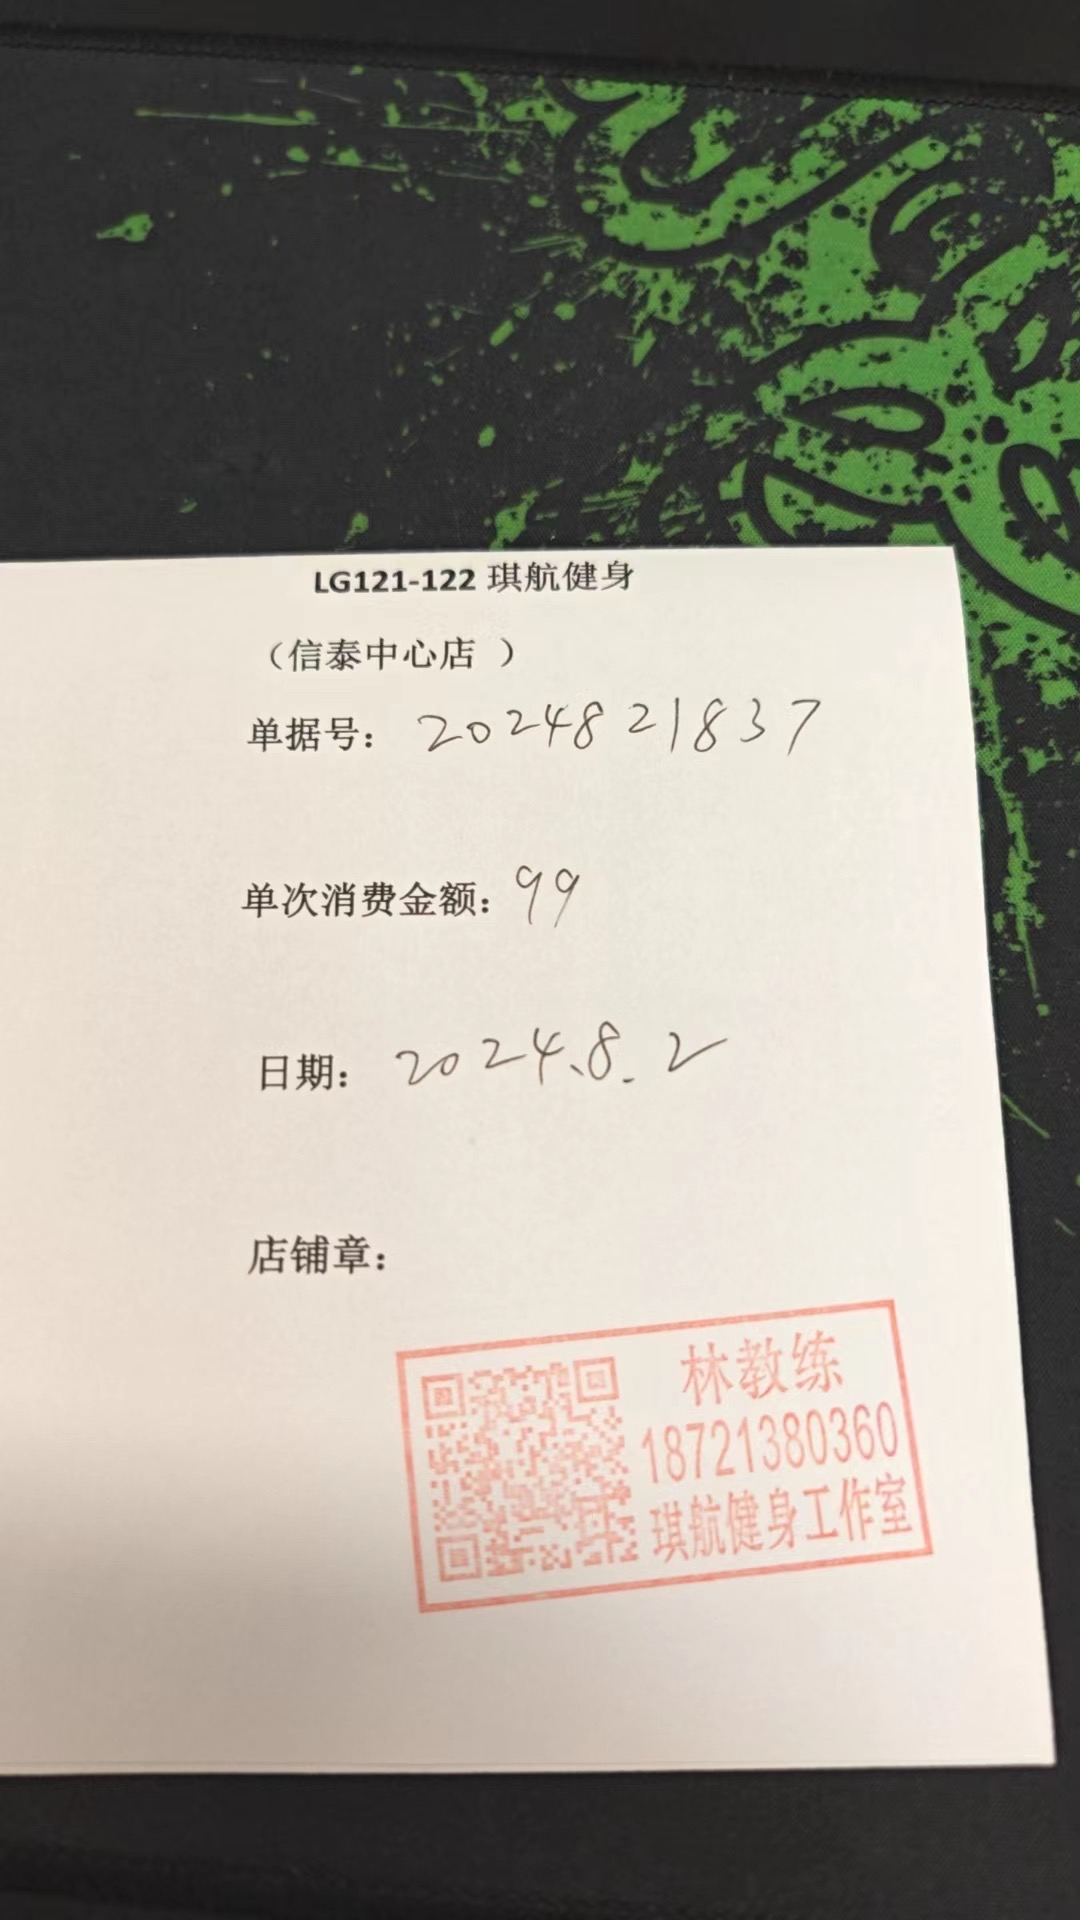 LG121-122 琪航健身
（信泰中心店 ）
单据号： 2024821837
单次消费金额：99
日期： 2024.8.2
店铺章：
林教练
18721380360
琪航健身工作室